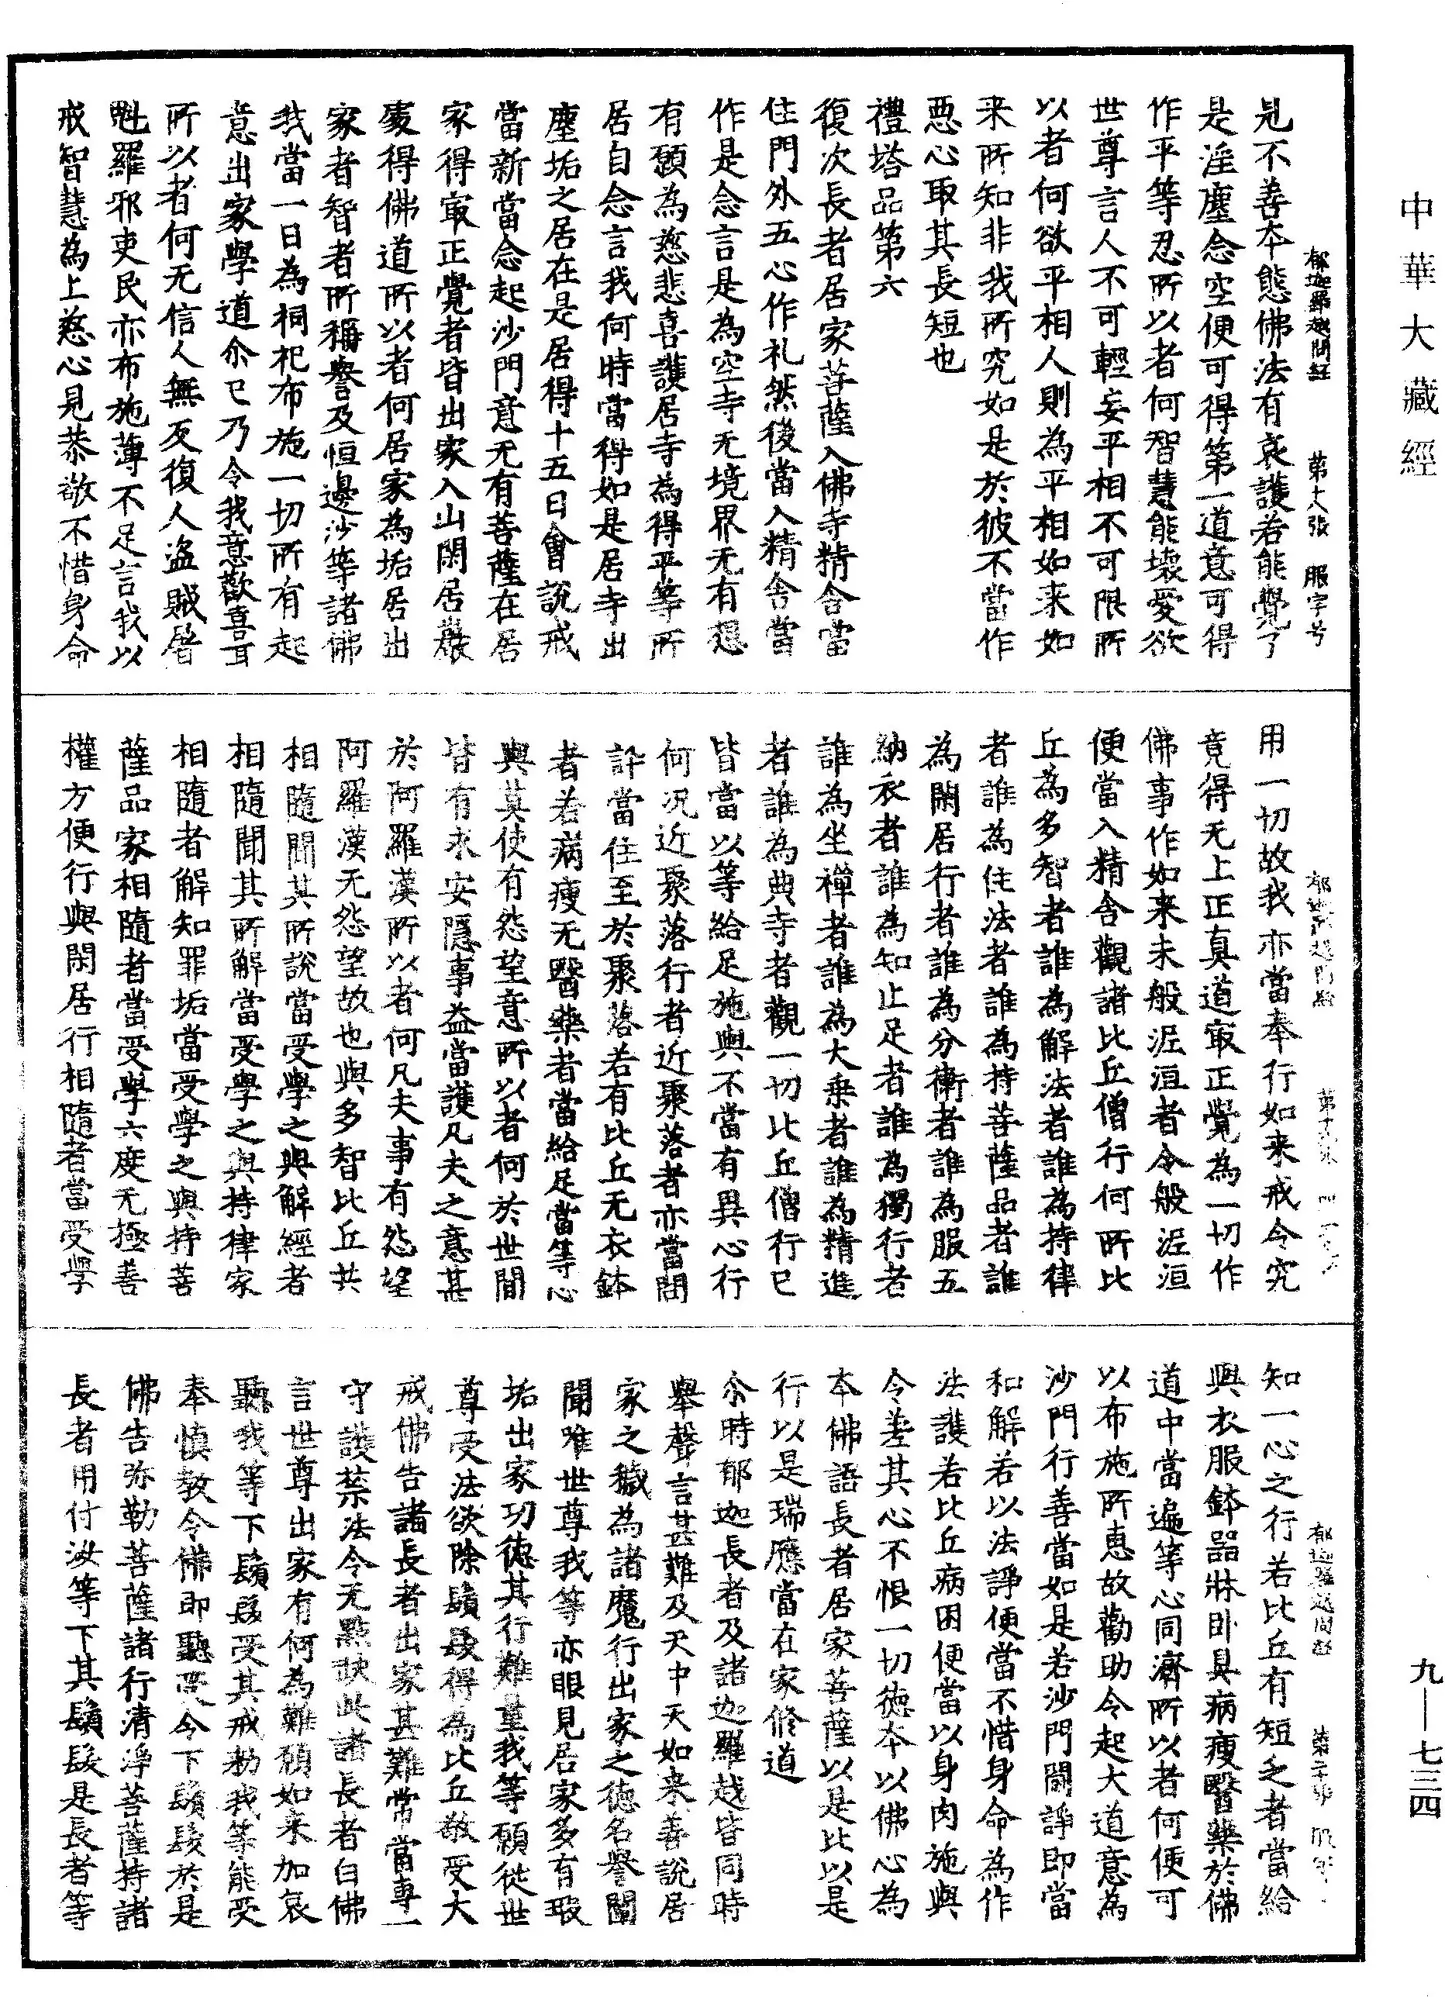 中華大藏經
九—七三四
見不善本態佛法有哀護若能覺了
是淫塵念空便可得第一道意可得
作平等忍所以者何智慧能壞愛欲
世尊言人不可輕妄平相不可限所
以者何欲平相人則為平相如来如
来所知非我所究如是於彼不當作
惡心取其長短也
禮塔品第六
復次長者居家菩薩入佛寺精舍當
住門外五心作礼然後當入精舍當
作是念言是為空寺无境界无有想
有願為慈悲喜護居寺為得平等所
居自念言我何時當得如是居寺出
塵垢之居在是居得十五日會說戒
當新當念起沙門意无有菩薩在居
家得㝡正覺者皆出家入山閑居巖
處得佛道所以者何居家為垢居出
家者智者所稱譽及恒邊沙等諸佛
我當一日為祠祀布施一切所有起
意出家學道尒已乃令我意歡喜耳
所以者何无信人無反復人盜賊屠
魁羅邪吏民亦布施薄不足言我以
戒智慧為上慈心見恭敬不惜身命
用一切故我亦當奉行如来戒令究
竟得无上正真道㝡正覺為一切作
佛事作如来未般泥洹者令般泥洹
便當入精舍觀諸比丘僧行何所比
丘為多智者誰為解法者誰為持律
者誰為住法者誰為持菩薩品者誰
為閑居行者誰為分衛者誰為服五
納衣者誰為知止足者誰為獨行者
誰為坐禪者誰為大乗者誰為精進
者誰為典寺者觀一切比丘僧行已
皆當以等給足施與不當有異心行
何況近聚落行者近聚落者亦當問
訴當住至於聚落若有比丘无衣鉢
者若病瘦无醫藥者當給足當等心
與莫使有怨望意所以者何於世間
皆有求安隱事益當護凡夫之意甚
於阿羅漢所以者何凡夫事有怨望
阿羅漢无怨望故也與多智比丘共
相隨聞其所說當受學之與解經者
相隨聞其所解當受學之與持律家
相隨者解知罪垢當受學之與持菩
薩品家相隨者當受學六度无極善
權方便行與閑居行相隨者當受學
知一心之行若比丘有短乏者當給
與衣服鉢器牀卧具病瘦醫藥於佛
道中當遍等心同濟所以者何便可
以布施所惠故勸助令起大道意為
沙門行善當如是若沙門鬪諍即當
和解若以法諍便當不惜身命為作
法護若比丘病困便當以身肉施與
令差其心不恨一切徳本以佛心為
本佛語長者居家菩薩以是比以是
行以是瑞應當在家修道
尒時郁迦長者及諸迦羅越皆同時
舉聲言甚難及天中天如来善說居
家之穢為諸魔行出家之徳名譽闡
聞唯世尊我等亦眼見居家多有瑕
垢出家功徳其行難量我等願從世
尊受法欲除鬚髮得為比丘敬受大
戒佛告諸長者出家甚難常當專一
守護禁法令无點缺此諸長者白佛
言世尊出家有何為難願如来加哀
聽我等下鬚髮受其戒勑我等能受
奉慎教令佛即聽受令下鬚髮於是
佛告弥勒菩薩諸行清淨菩薩持諸
長者用付汝等下其鬚髮是長者等